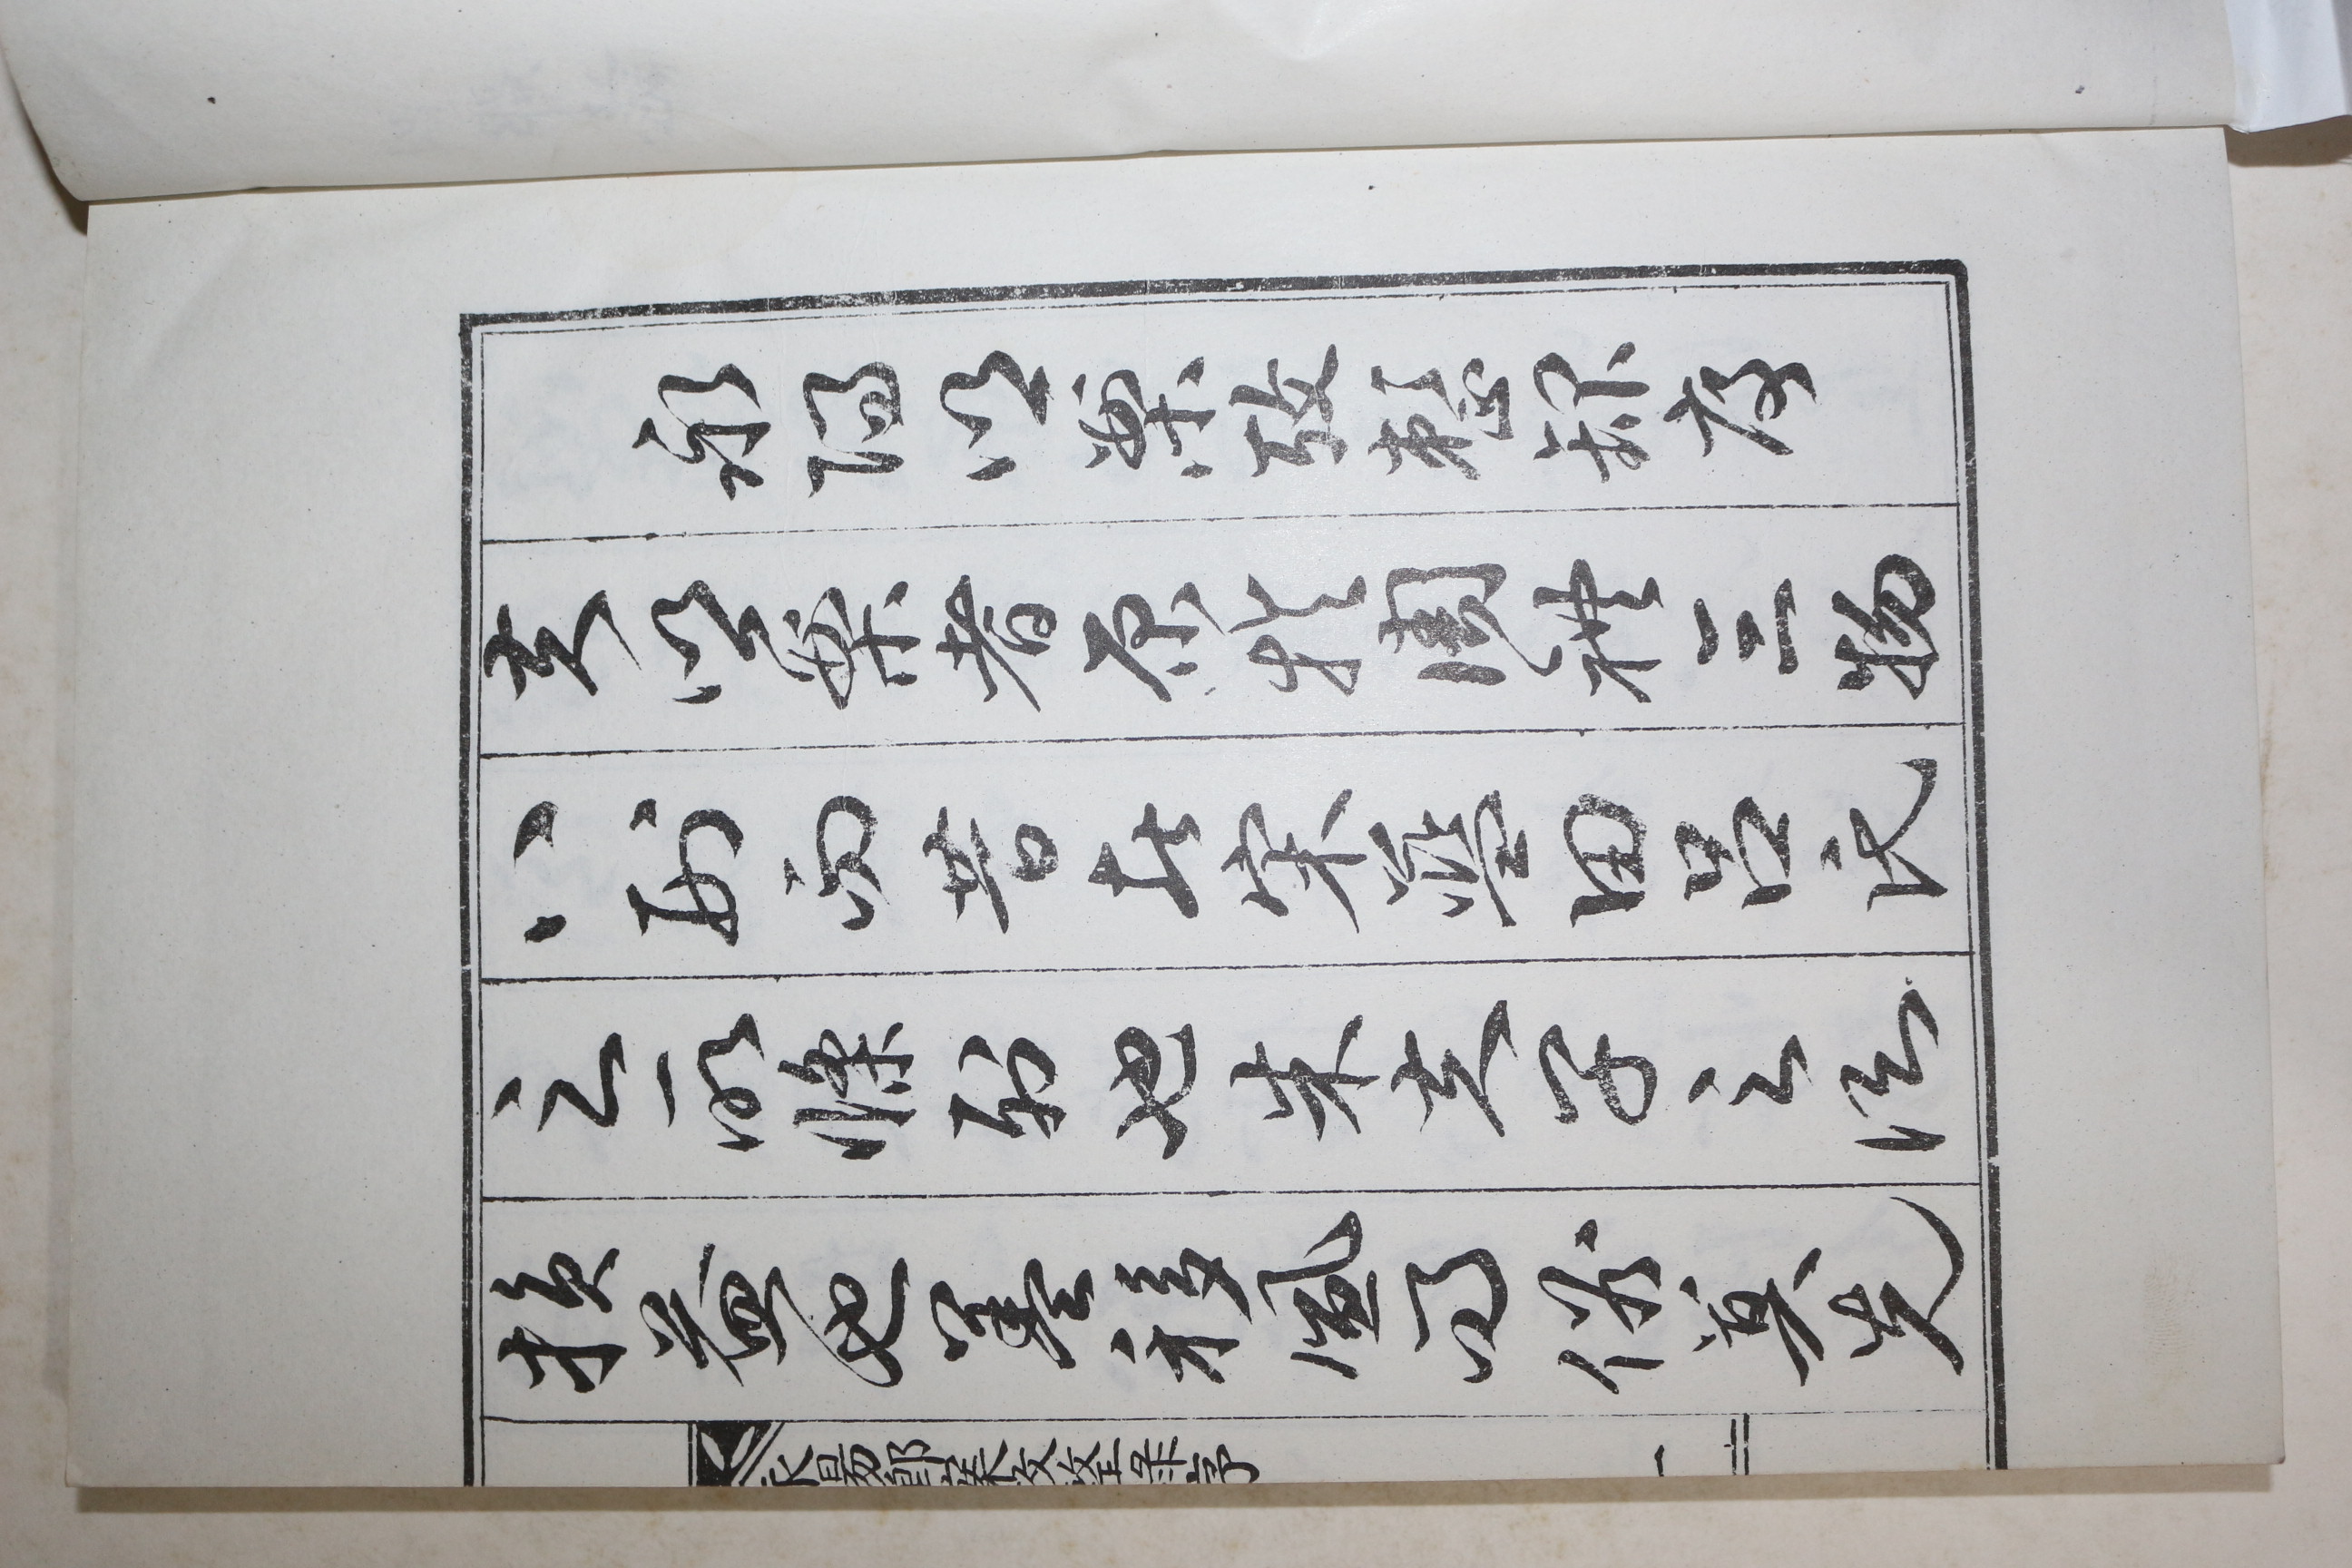 永陽鄕案攷整錄序
夫鄕案者原於周禮三物
八刑而昔在宋藍田呂氏
之所條列也朱夫子之所
損益也盖移風易俗莫先
永陽鄕案攷整錄序
一